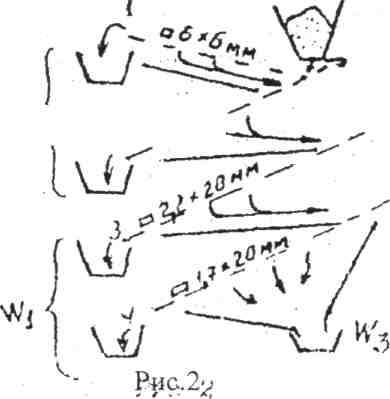 □ 6×6 мм
□ 2,2×20 мм
3
□ 1,7×20 мм
W₁
4
W₃
Рис.2₂